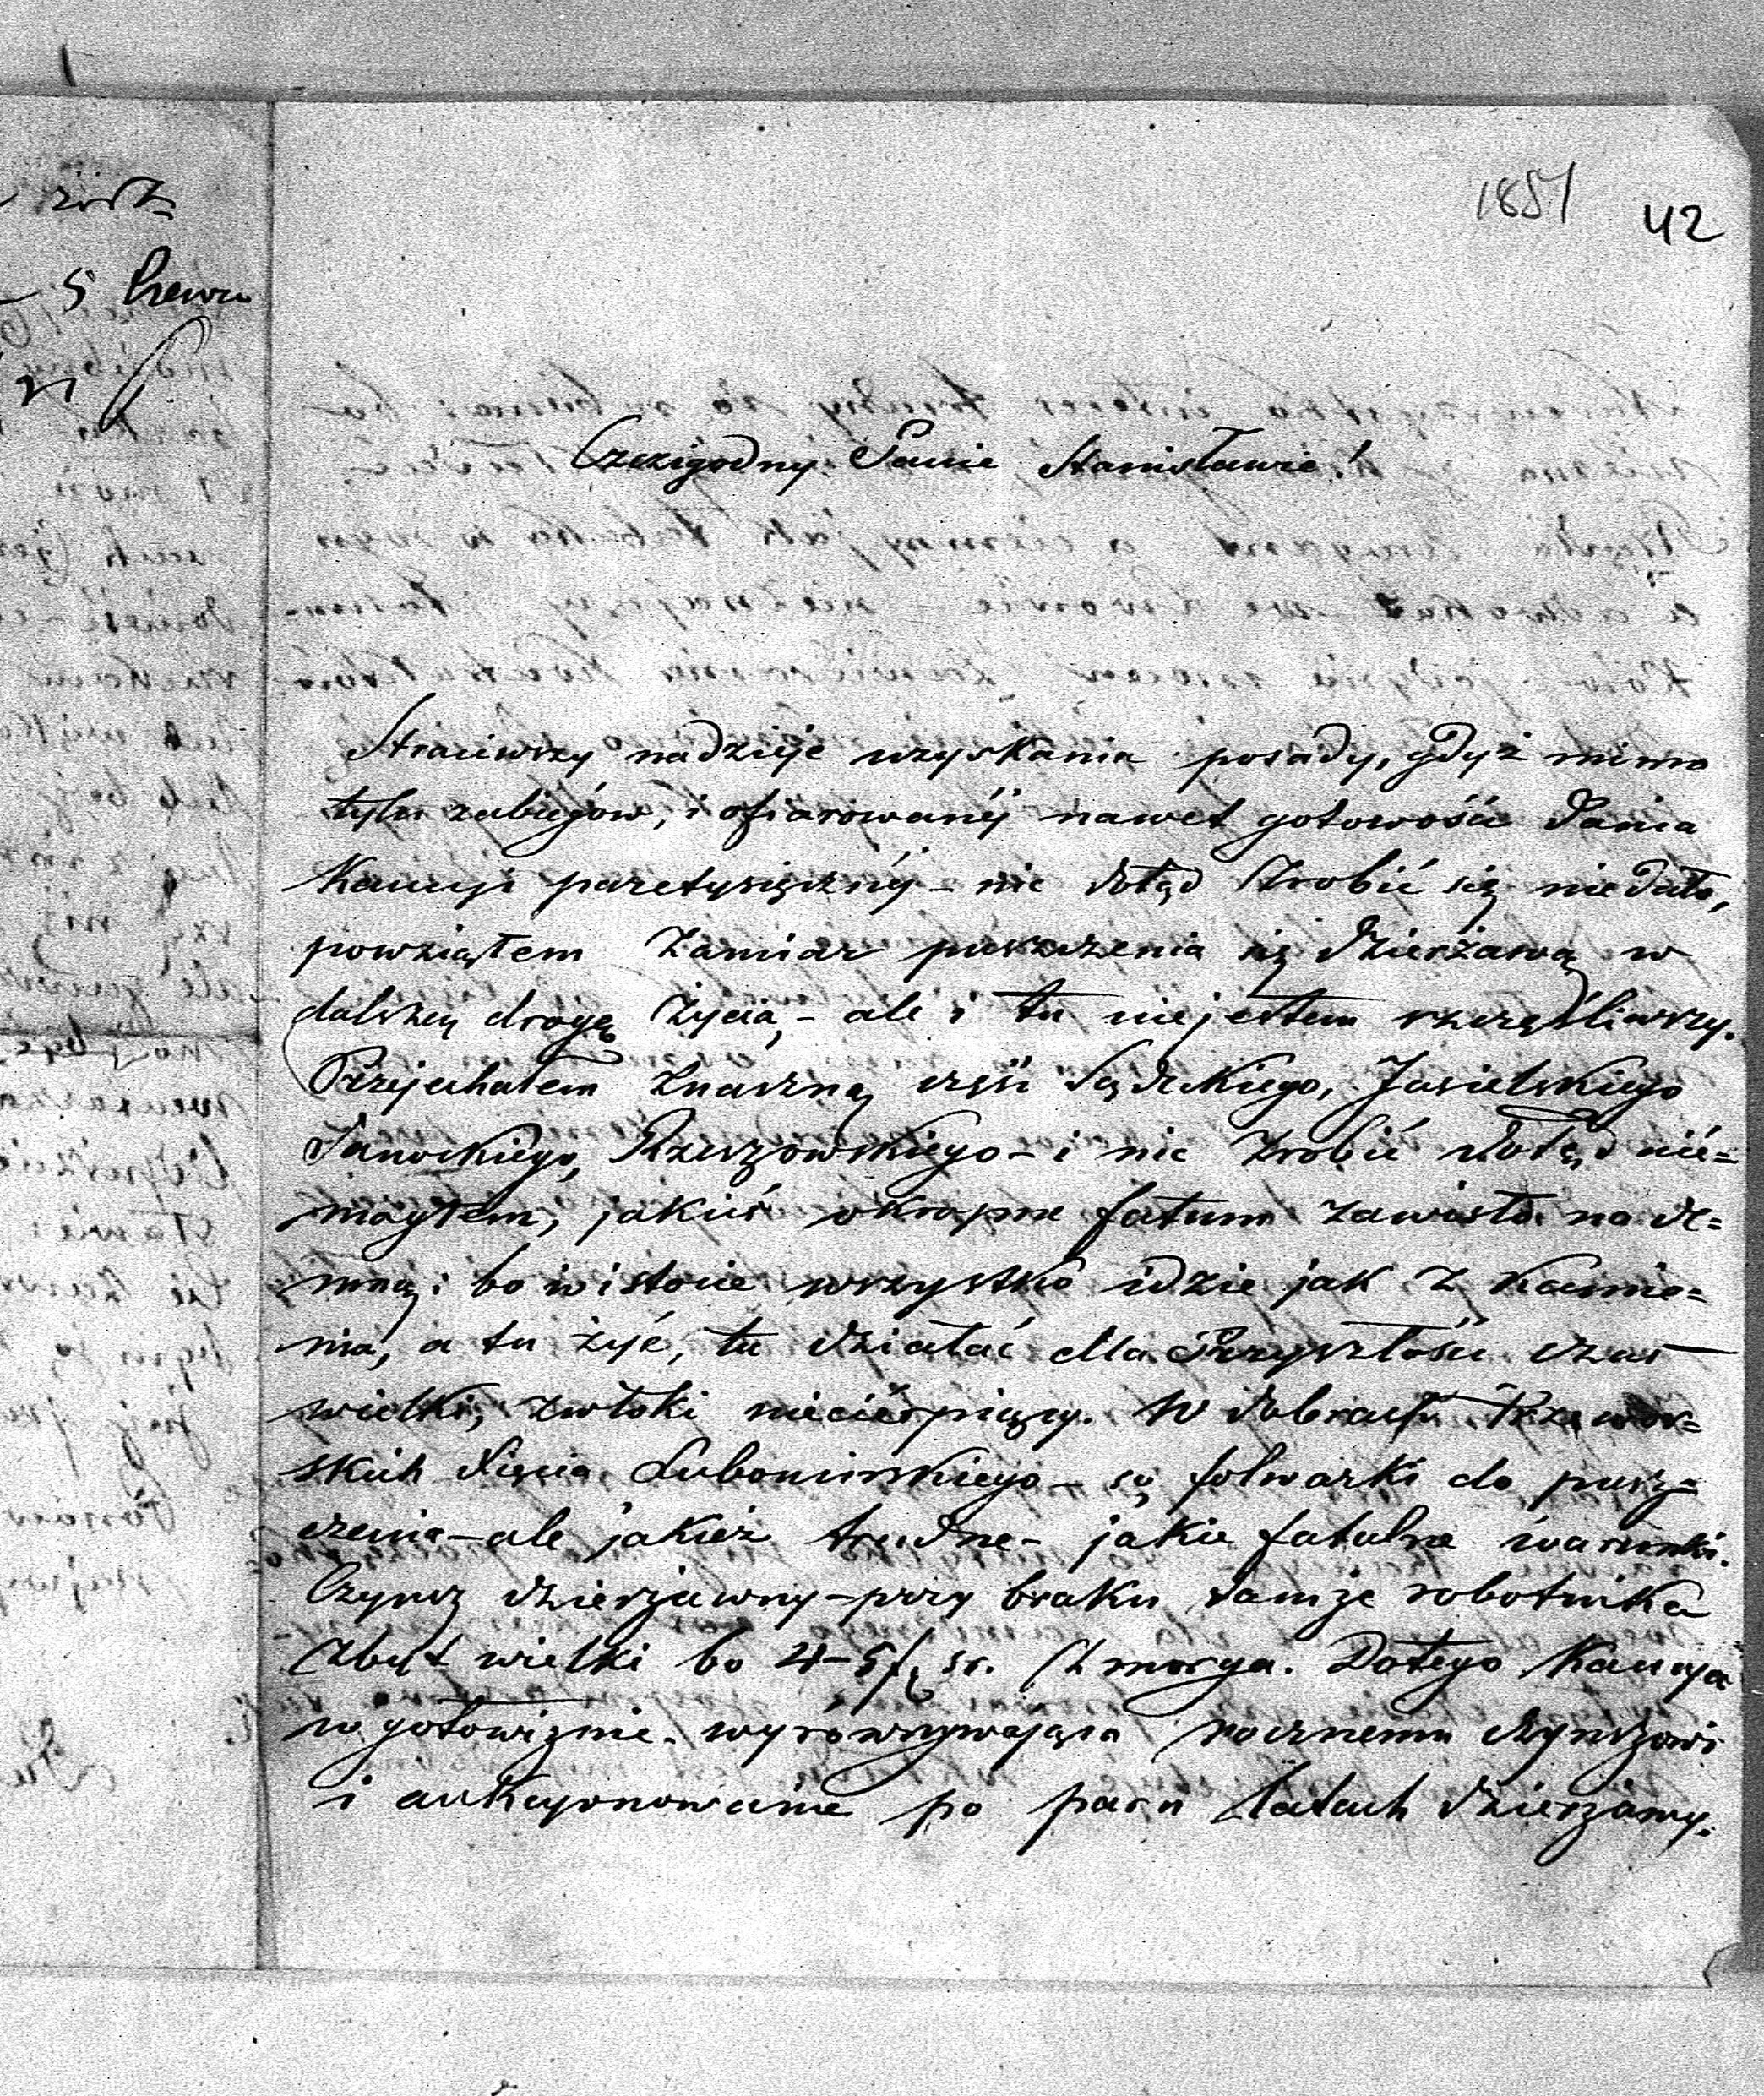 1851 42
5
Czcigodny Panie Stanisławie!
Straciwszy nadzieję uzyskania posady, gdyż mimo
tylu zabiegów, i ofiarowanéj nawet gotowości dania
Kaucyi paretysięcznéj – nic dotąd zrobić się niedało,
powziąłem zamiar puszczenia się dzierżawą w
dalszą drogę życia, – ale i tu niejestem szczęśliwszy.
Przejechałem znaczną część Sądeckiego, Jasielskiego
Sanockiego, Rzeszowskiego – i nic zrobić dotąd nie=
mogłem, jakieś okropne fatum zawisło nade=
mną; bo w istocie wszystko idzie jak z kamie=
nia, a tu żyć, tu działać dla Przyszłości czas
wielki, zwłoki niecierpiący. W dobrach
skich Xięcia Lubomirskiego – są folwarki do pusz=
czenia – ale jakież trudne – jakie fatalne warunki.
Czynsz dzierżawny – przy braku tamże robotnika
zbyt wielki bo 4–5 sr. z morga. Dotego Kaucya
w gotowiznie wyrównywająca rocznemu czynszowi
i aukcyonowanie po paru latach dzierżawy.